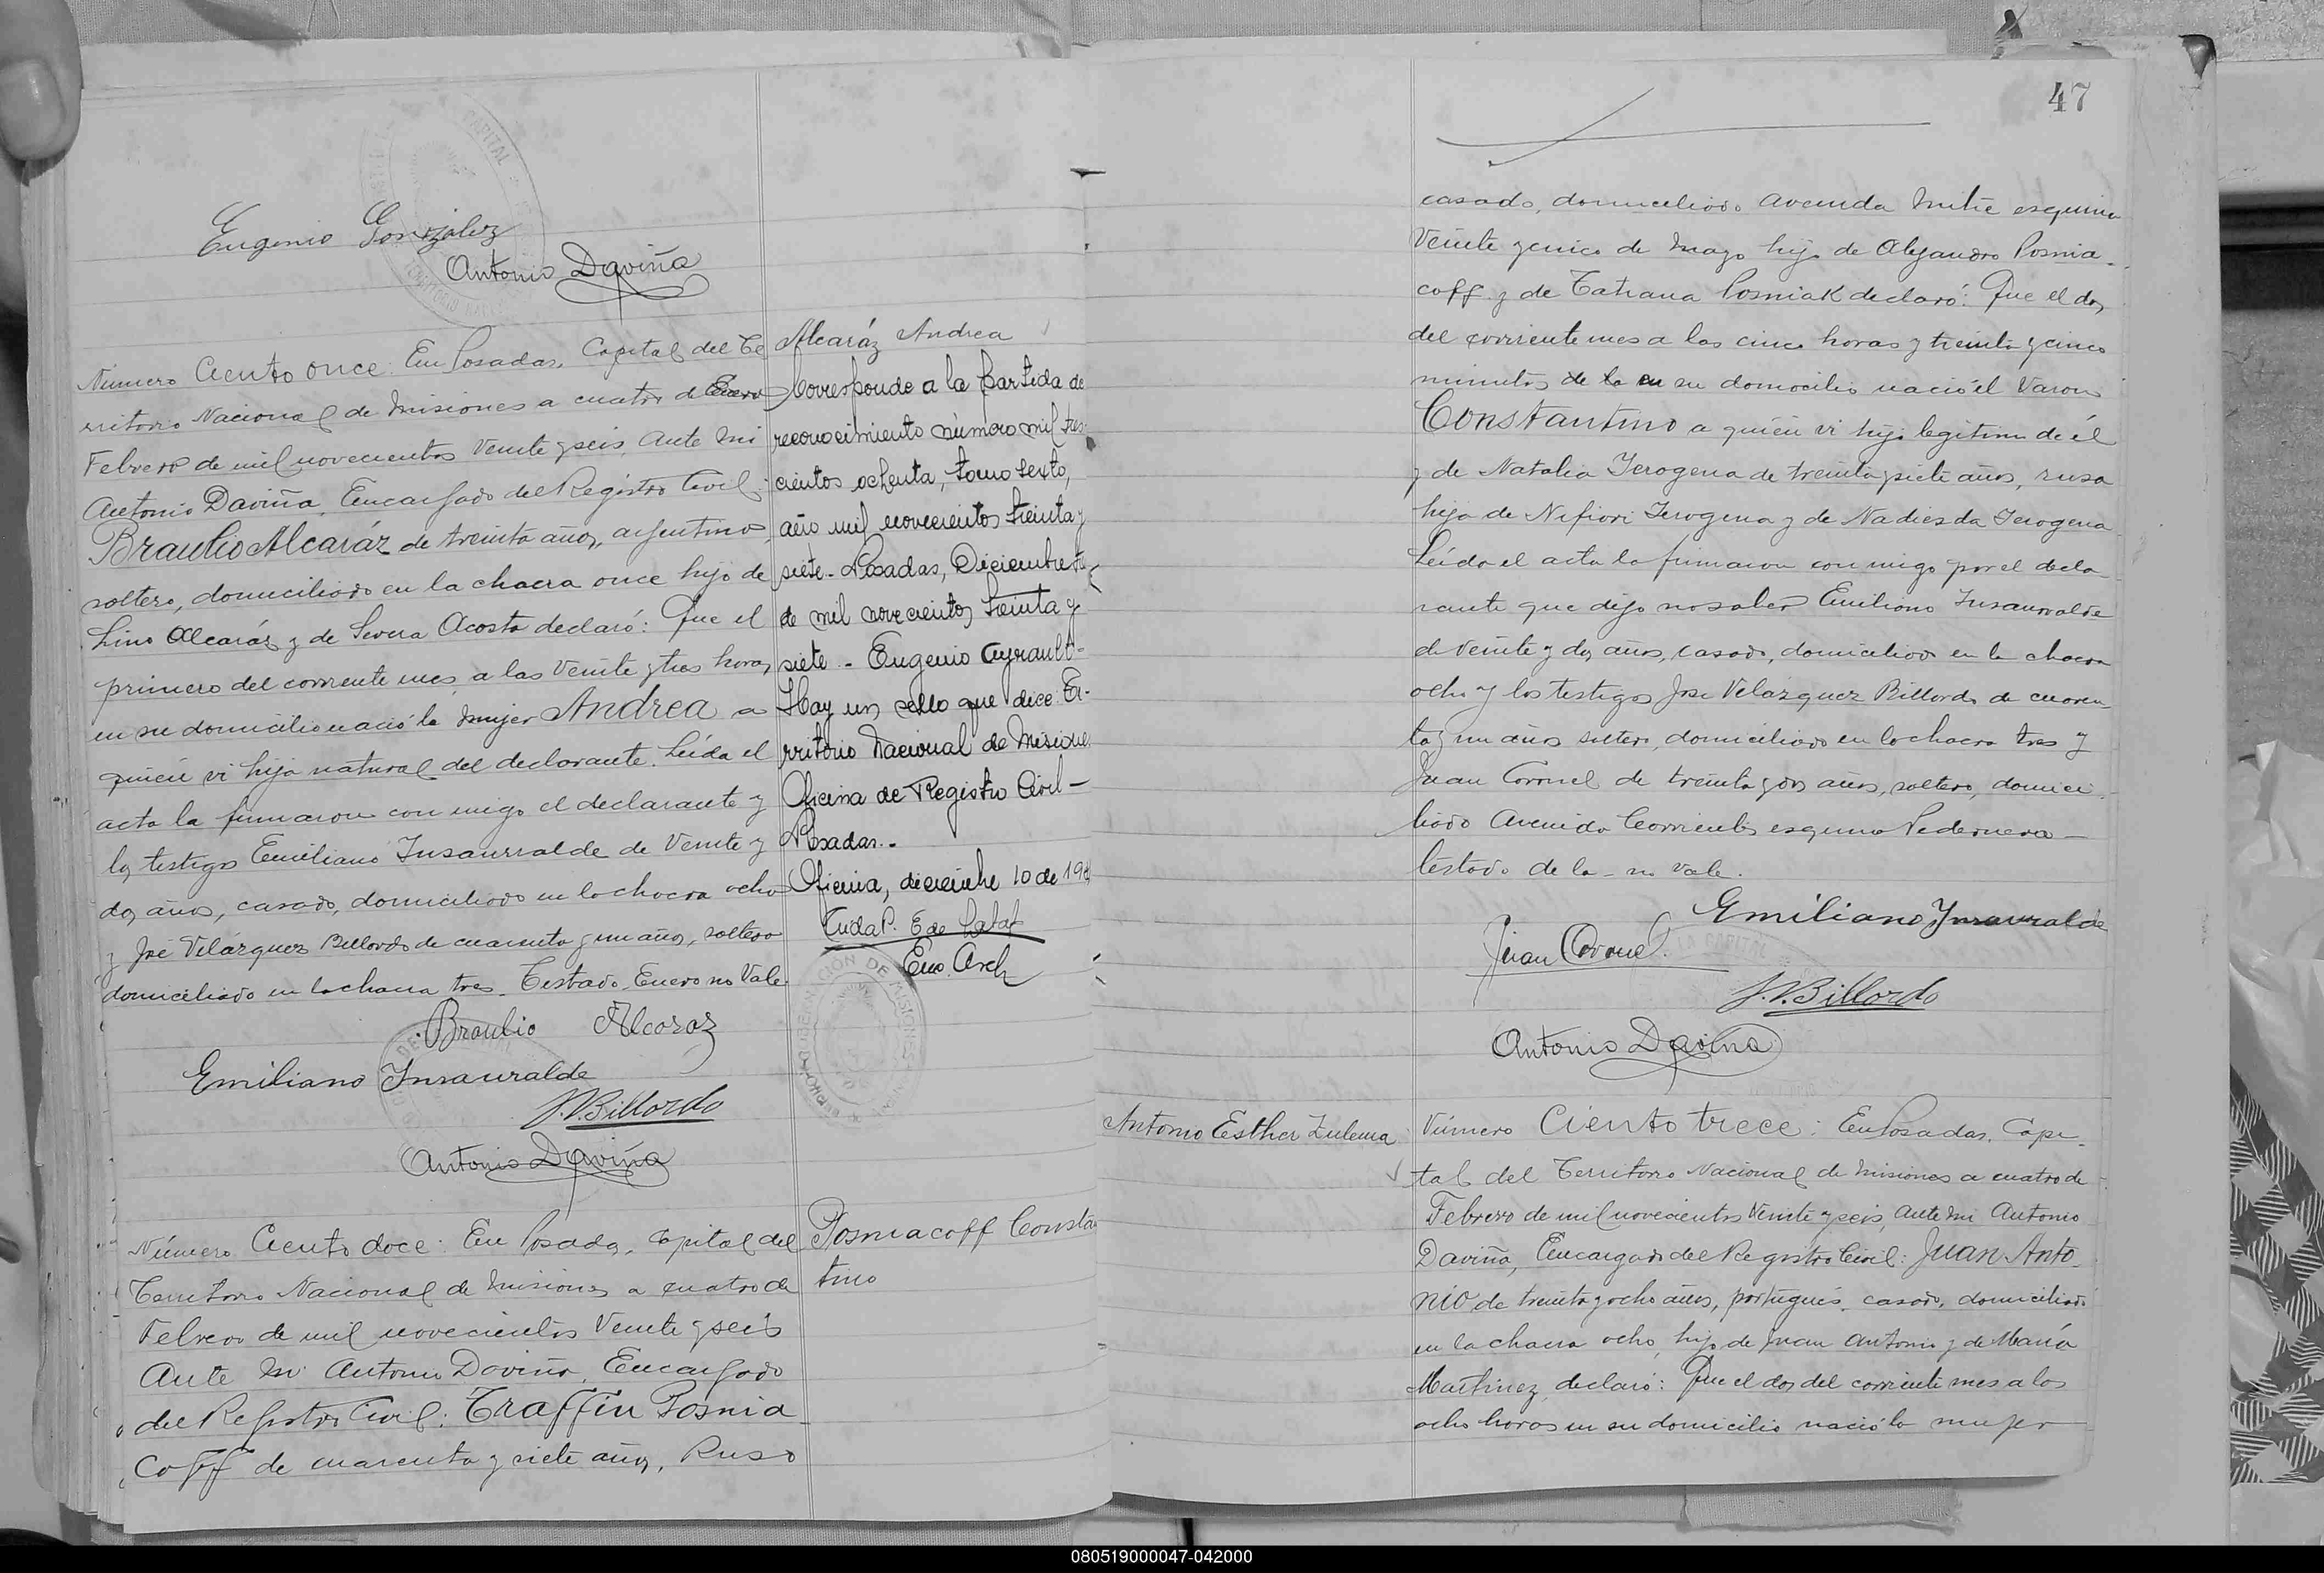 Eugenio González
Antonio Daviña
Número Ciento once: En Posadas, Capital del Te
rritorio Nacional de Misiones a cuatro de Enero
Febrero de mil novecientos veinte y seis, ante mi
Antonio Daviña, Encargado del Registro Civil:
Braulio Alcaráz de treinta años, argentino,
soltero, domiciliado en la chacra once hijo de
Lino Alcaráz y de Severa Acosta declaró: Que el
primero del corriente mes a las veinte y tres horas
en su domicilio nació la mujer Andrea a
quien vi hija natural del declarante. Leída el
acta la firmaron con migo el declarante y
los testigos Emiliano Insaurralde de veinte y
dos años, casado, domiciliado en la chacra ocho
y José Velázquez Billordo de cuarenta y un años, soltero
domiciliado en la chacra tres. Testado. Enero no Vale.
Braulio Alcaraz
Emiliano Insauralde
J.V. Billordo
Antonio Daviña
Alcaráz Andrea
Corresponde a la partida de
reconocimiento número mil tres
cientos ochenta, tomo sexto,
año mil novecientos treinta y
siete - Posadas, Diciembre
de mil novecientos treinta y
siete - Eugenio Ayrault -
Hay un sello que dice: Te-
rritorio Nacional de Misiones
Oficina de Registro Civil -
Posadas.-
Oficina, diciembre 10 de 19
Enc. Arch
Número Ciento doce: En Posadas, Capital del
Territorio Nacional de Misiones a cuatro de
Febrero de mil novecientos Veinte y seis
Ante Mi Antonio Daviña, Encargado
del Registro Civil: Traffin Posnia
coff de cuarenta y siete años, Ruso
Posniacoff Constan
tino
47
casado, domiciliado avenida Mitre esquina
Veinte y cinco de Mayo hijo de Alejandro Posnia-
coff y de Tatiana Posniak declaró: Que el dos
del corriente mes a las cinco horas y treinta y cinco
minutos de la en su domicilio nació el Varon
Constantino a quien vi hijo legitimo de él
y de Natalia Jerogena de treinta y siete años, rusa
hija de Nifiori Jerogena y de Nadiesda Jerogena
Leída el acta la firmaron con migo por el decla-
rante que dijo no saber Emiliano Insaurralde
de veinte y dos años, casado, domiciliado en la chacra
ocho y los testigos José Velázquez Billordo de cuaren
ta y un años soltero, domiciliado en la chacra tres y
Juan Coronel de treinta y dos años, soltero, domici-
liado Avenida Corrientes esquina Pedernera -
Testado de la - no vale.
Emiliano Insauralde
Juan Coronel
J.V. Billordo
Antonio Daviña
Antonio Esther Zulema
Número Ciento trece: En Posadas, Capi-
tal del Territorio Nacional de Misiones a cuatro de
Febrero de mil novecientos veinte y seis, ante mi Antonio
Daviña, Encargado del Registro Civil: Juan Anto-
nio de treinta y ocho años, portugués, casado, domiciliado
en la chacra ocho, hijo de Juan Antonio y de María
Martinez declaró: Que el dos del corriente mes a las
ocho horas en su domicilio nació la mujer
080519000047-042000